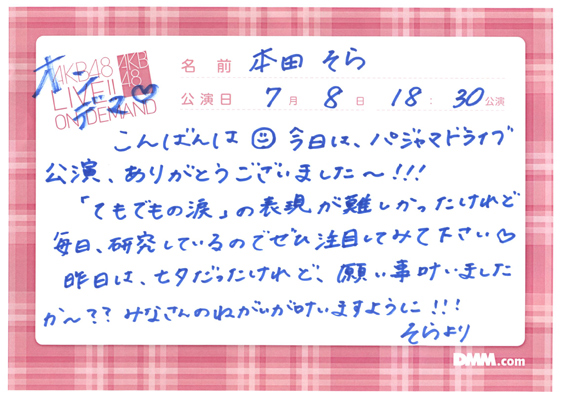 オンデマ♡
AKB48
LIVE!!
ON DEMAND
AKB
48
名前 本田 そら
公演日 7月 8日 18:30公演
こんばんは☺ 今日は、パジャマドライブ
公演、ありがとうございました〜!!!
「てもでもの涙」の表現が難しかったけれど
毎日、研究しているのでぜひ注目してみて下さい♡
昨日は、七夕だったけれど、願い事叶いました
か〜?? みなさんのねがいが叶いますように!!!
そらより
DMM.com